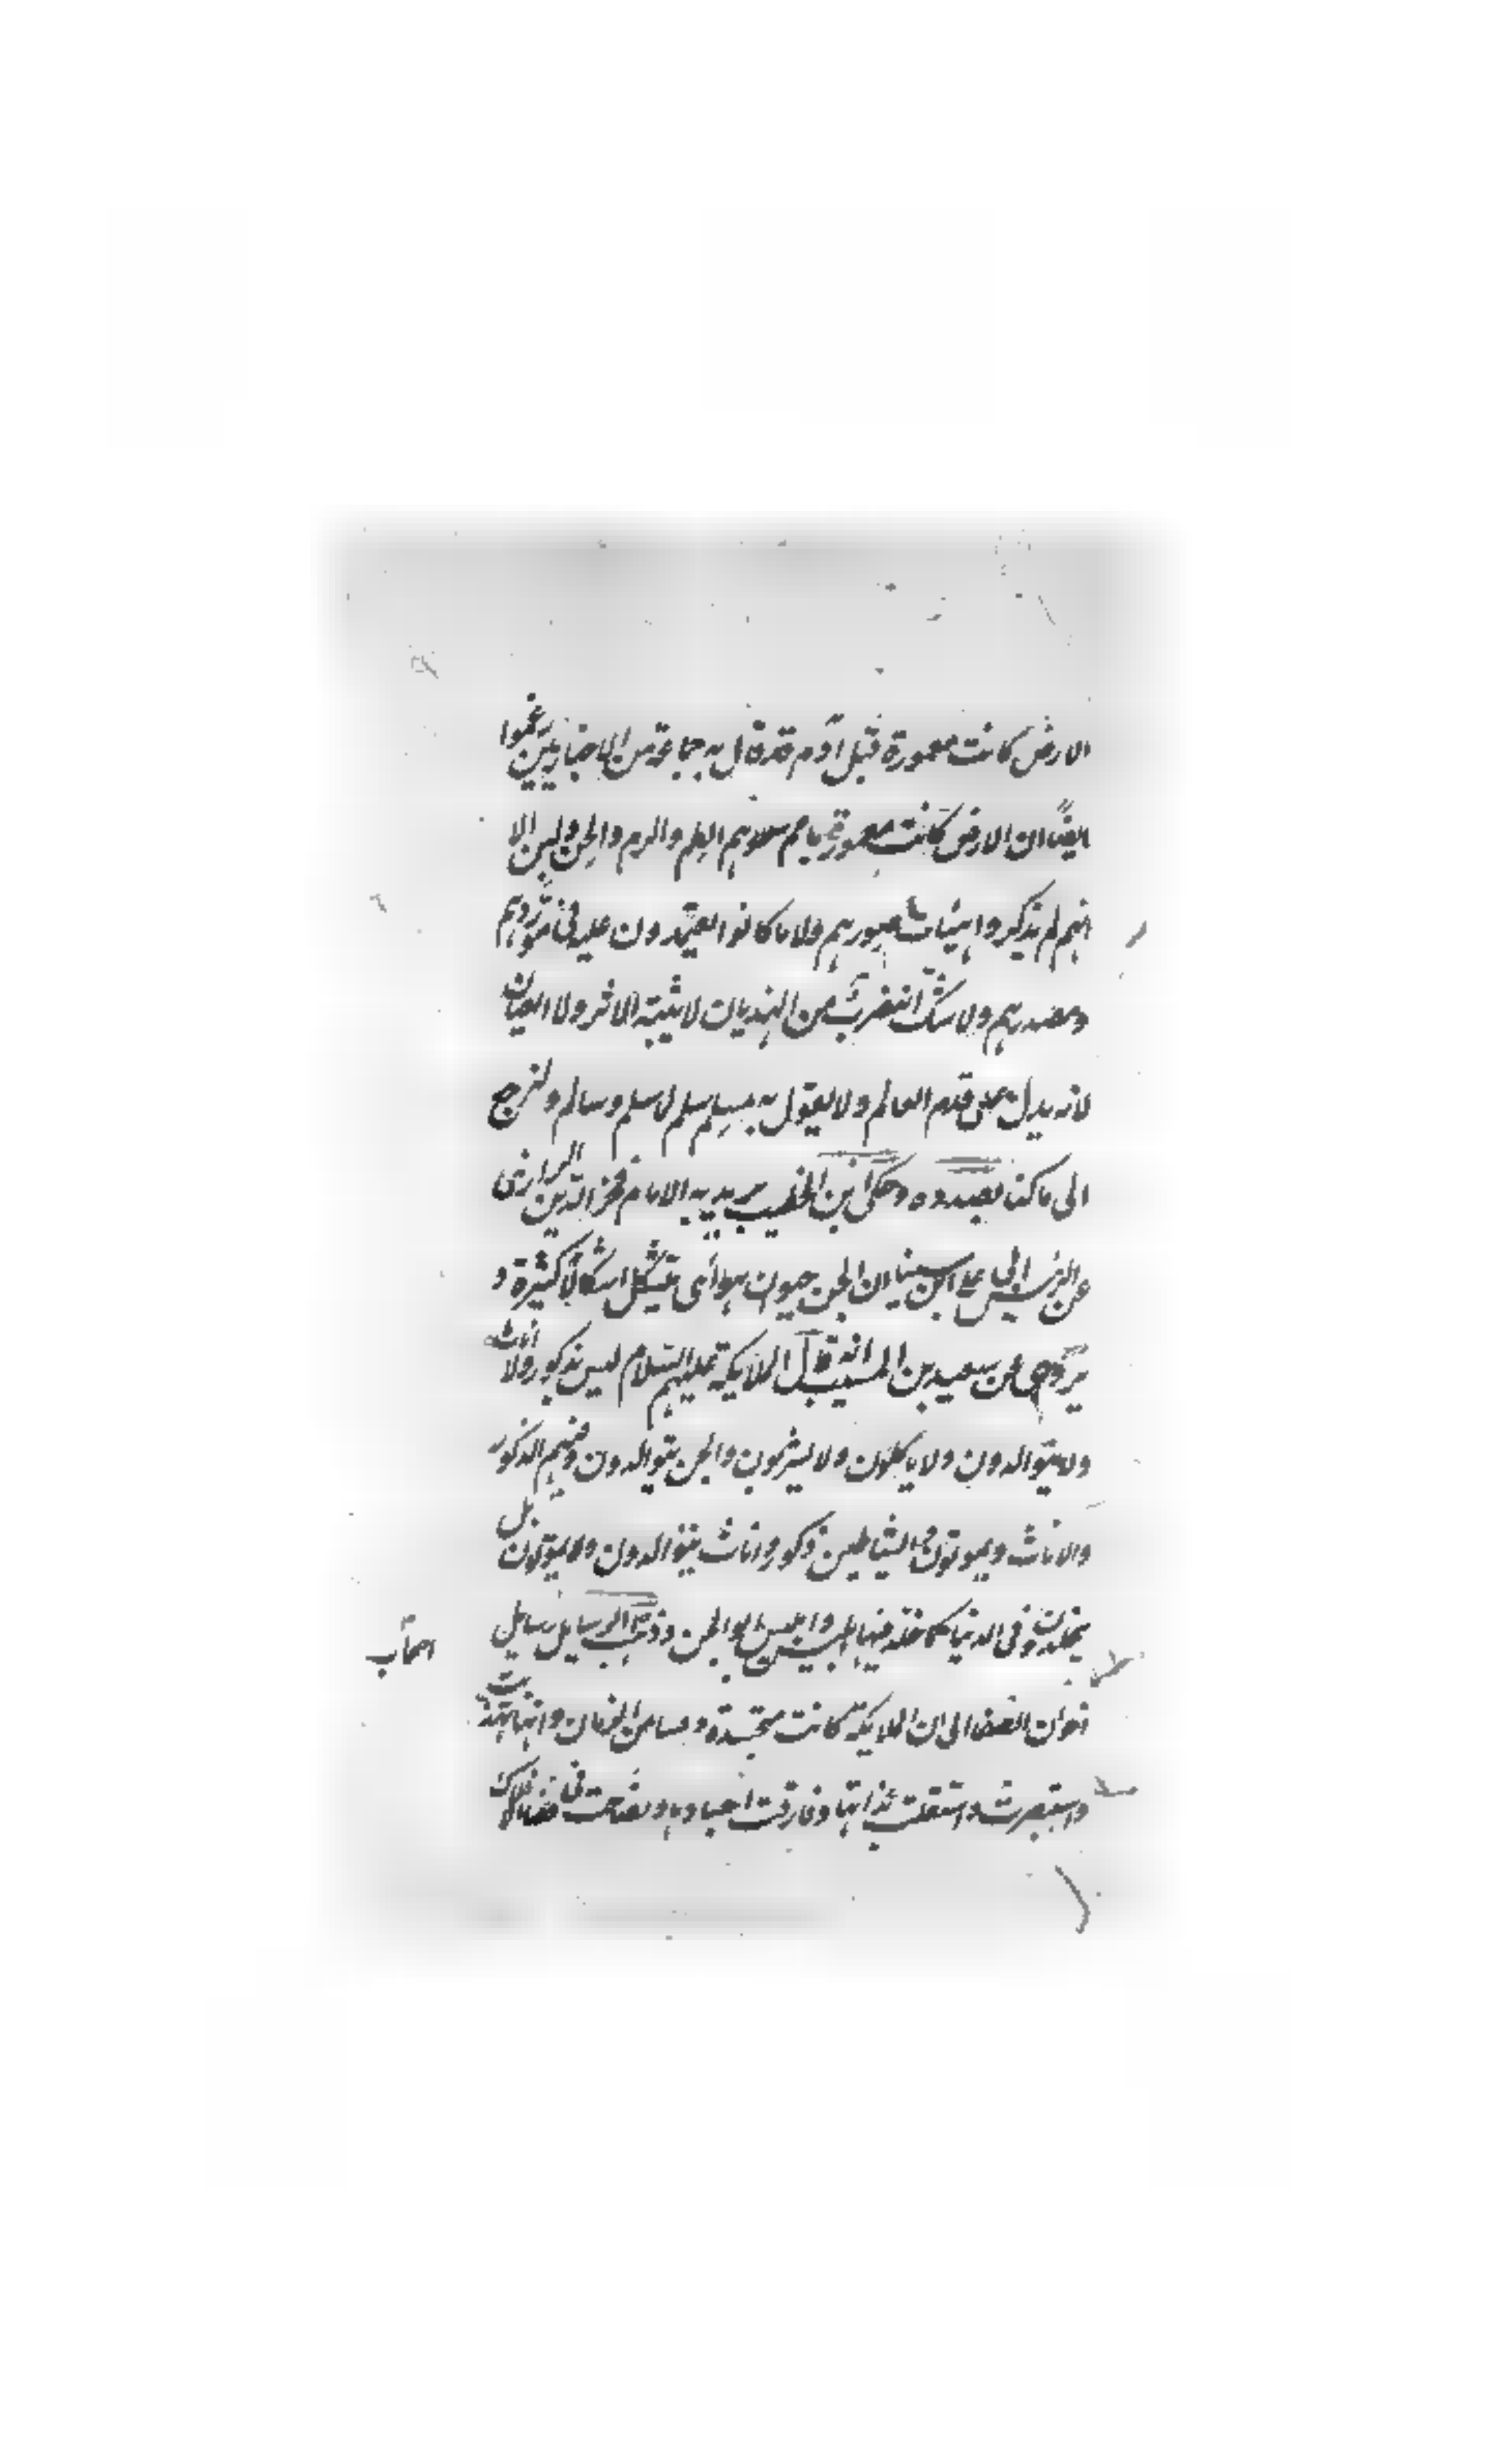 الارض كانت معمورة قبل آدم قد قال به جماعة من الاخباريين زعموا
ايضاً ان الارض كانت معمورة بامم سموهم الطم والرم والجن والبن الا
انهم لم يذكروا هيئات صورهم ولا ما كانوا يعتمدون عليه في موردهم
ومصدرهم ولا شك ان ضرب من الهذيان لا يثبته الاثر ولا العيان
لانه يدل على قدم العالم ولا يقول به مسلم سلم لاسلم وسالم ولنرجع
الى ما كنا بصدده وحكى ابن الخطيب يريد به الامام فخر الدين الرازى
عن الرئيس ابى على ابن سينا ان الجن حيوان هوائى يتشكل اشكالاً كثيرة و
يروى عن سعيد بن المسيب انه قال الملايكة عليهم السلام ليس بذكور ولا اناث
ولا يتوالدون ولا ياكلون ولا يشربون والجن يتوالدون ومنهم الذكور
والاناث ويموتون والشياطين ذكور واناث يتوالدون ولا يموتون بل
يخلدون فى الدنيا كما خلد فيها ابليس وابليس ابو الجن وذهب الرسايل رسايل
اصحاب
اخوان الصفا الى ان الملايكة كانت متجسدة ومسا من الزمان وانها تهذبت
واستبصرت واستقلت بذاتها وفارقت اجسادها وبقيت فى فضا الافلاك